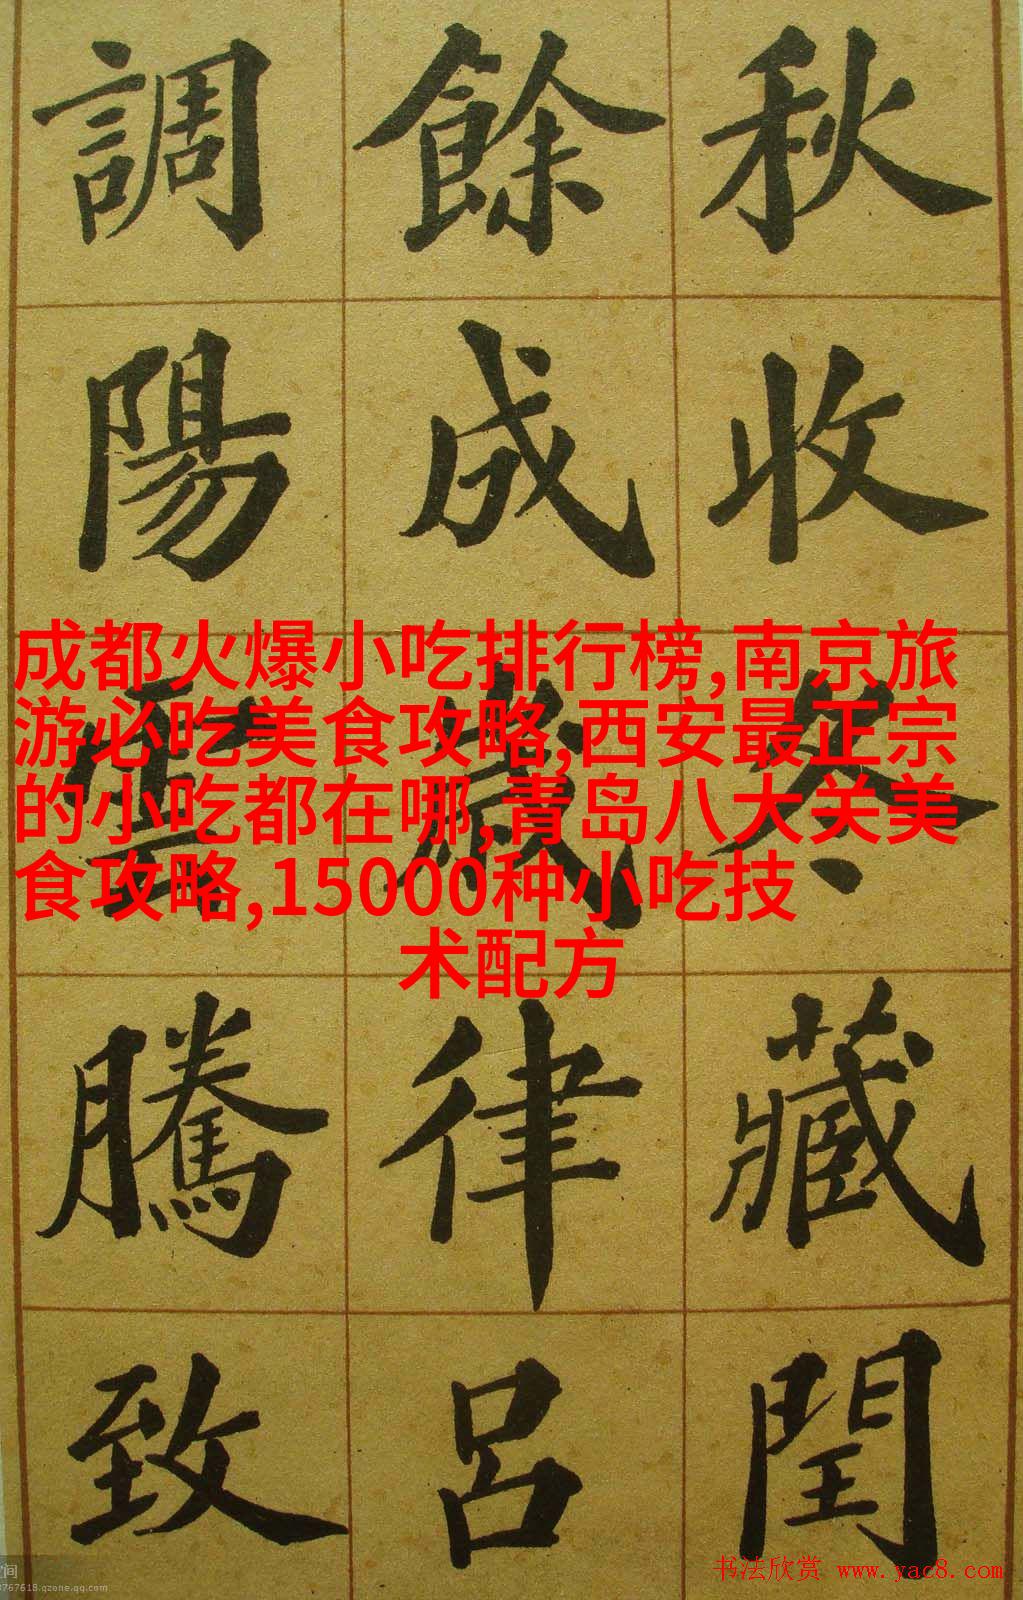 秋收冬藏閏
餘成歲律呂
調陽雲騰致
成都火爆小吃排行榜,南京旅
游必吃美食攻略,西安最正宗
的小吃都在哪,青岛八大关美
食攻略,15000种小吃技
术配方
书法欣赏 www.yac8.com
767618.qzone.qq.com